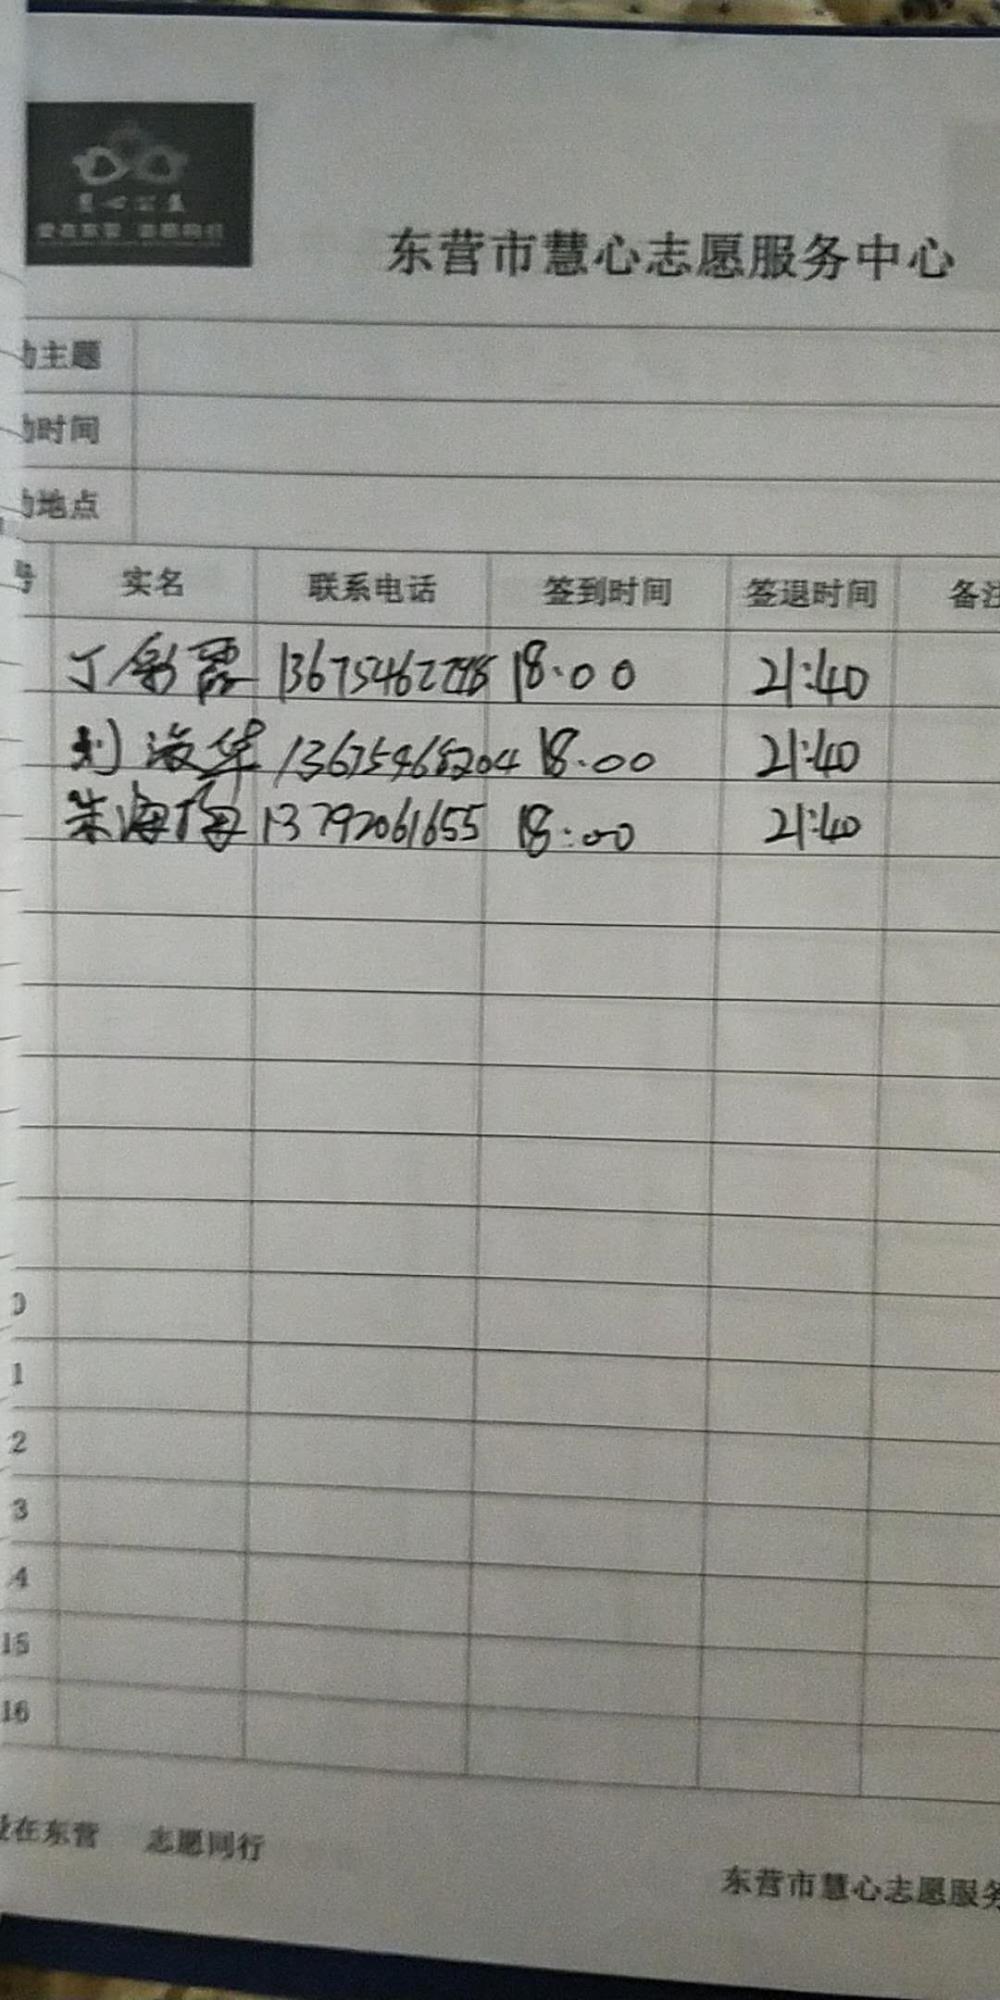 慧心公益
爱在东营 志愿同行
东营市慧心志愿服务中心
动主题
动时间
动地点
号 实名 联系电话 签到时间 签退时间 备注
丁彩霞 18:00 21:40
刘海华 13675468204 18:00 21:40
朱海梅 13792061655 18:00 21:40
0
1
2
3
4
15
16
爱在东营 志愿同行
东营市慧心志愿服务